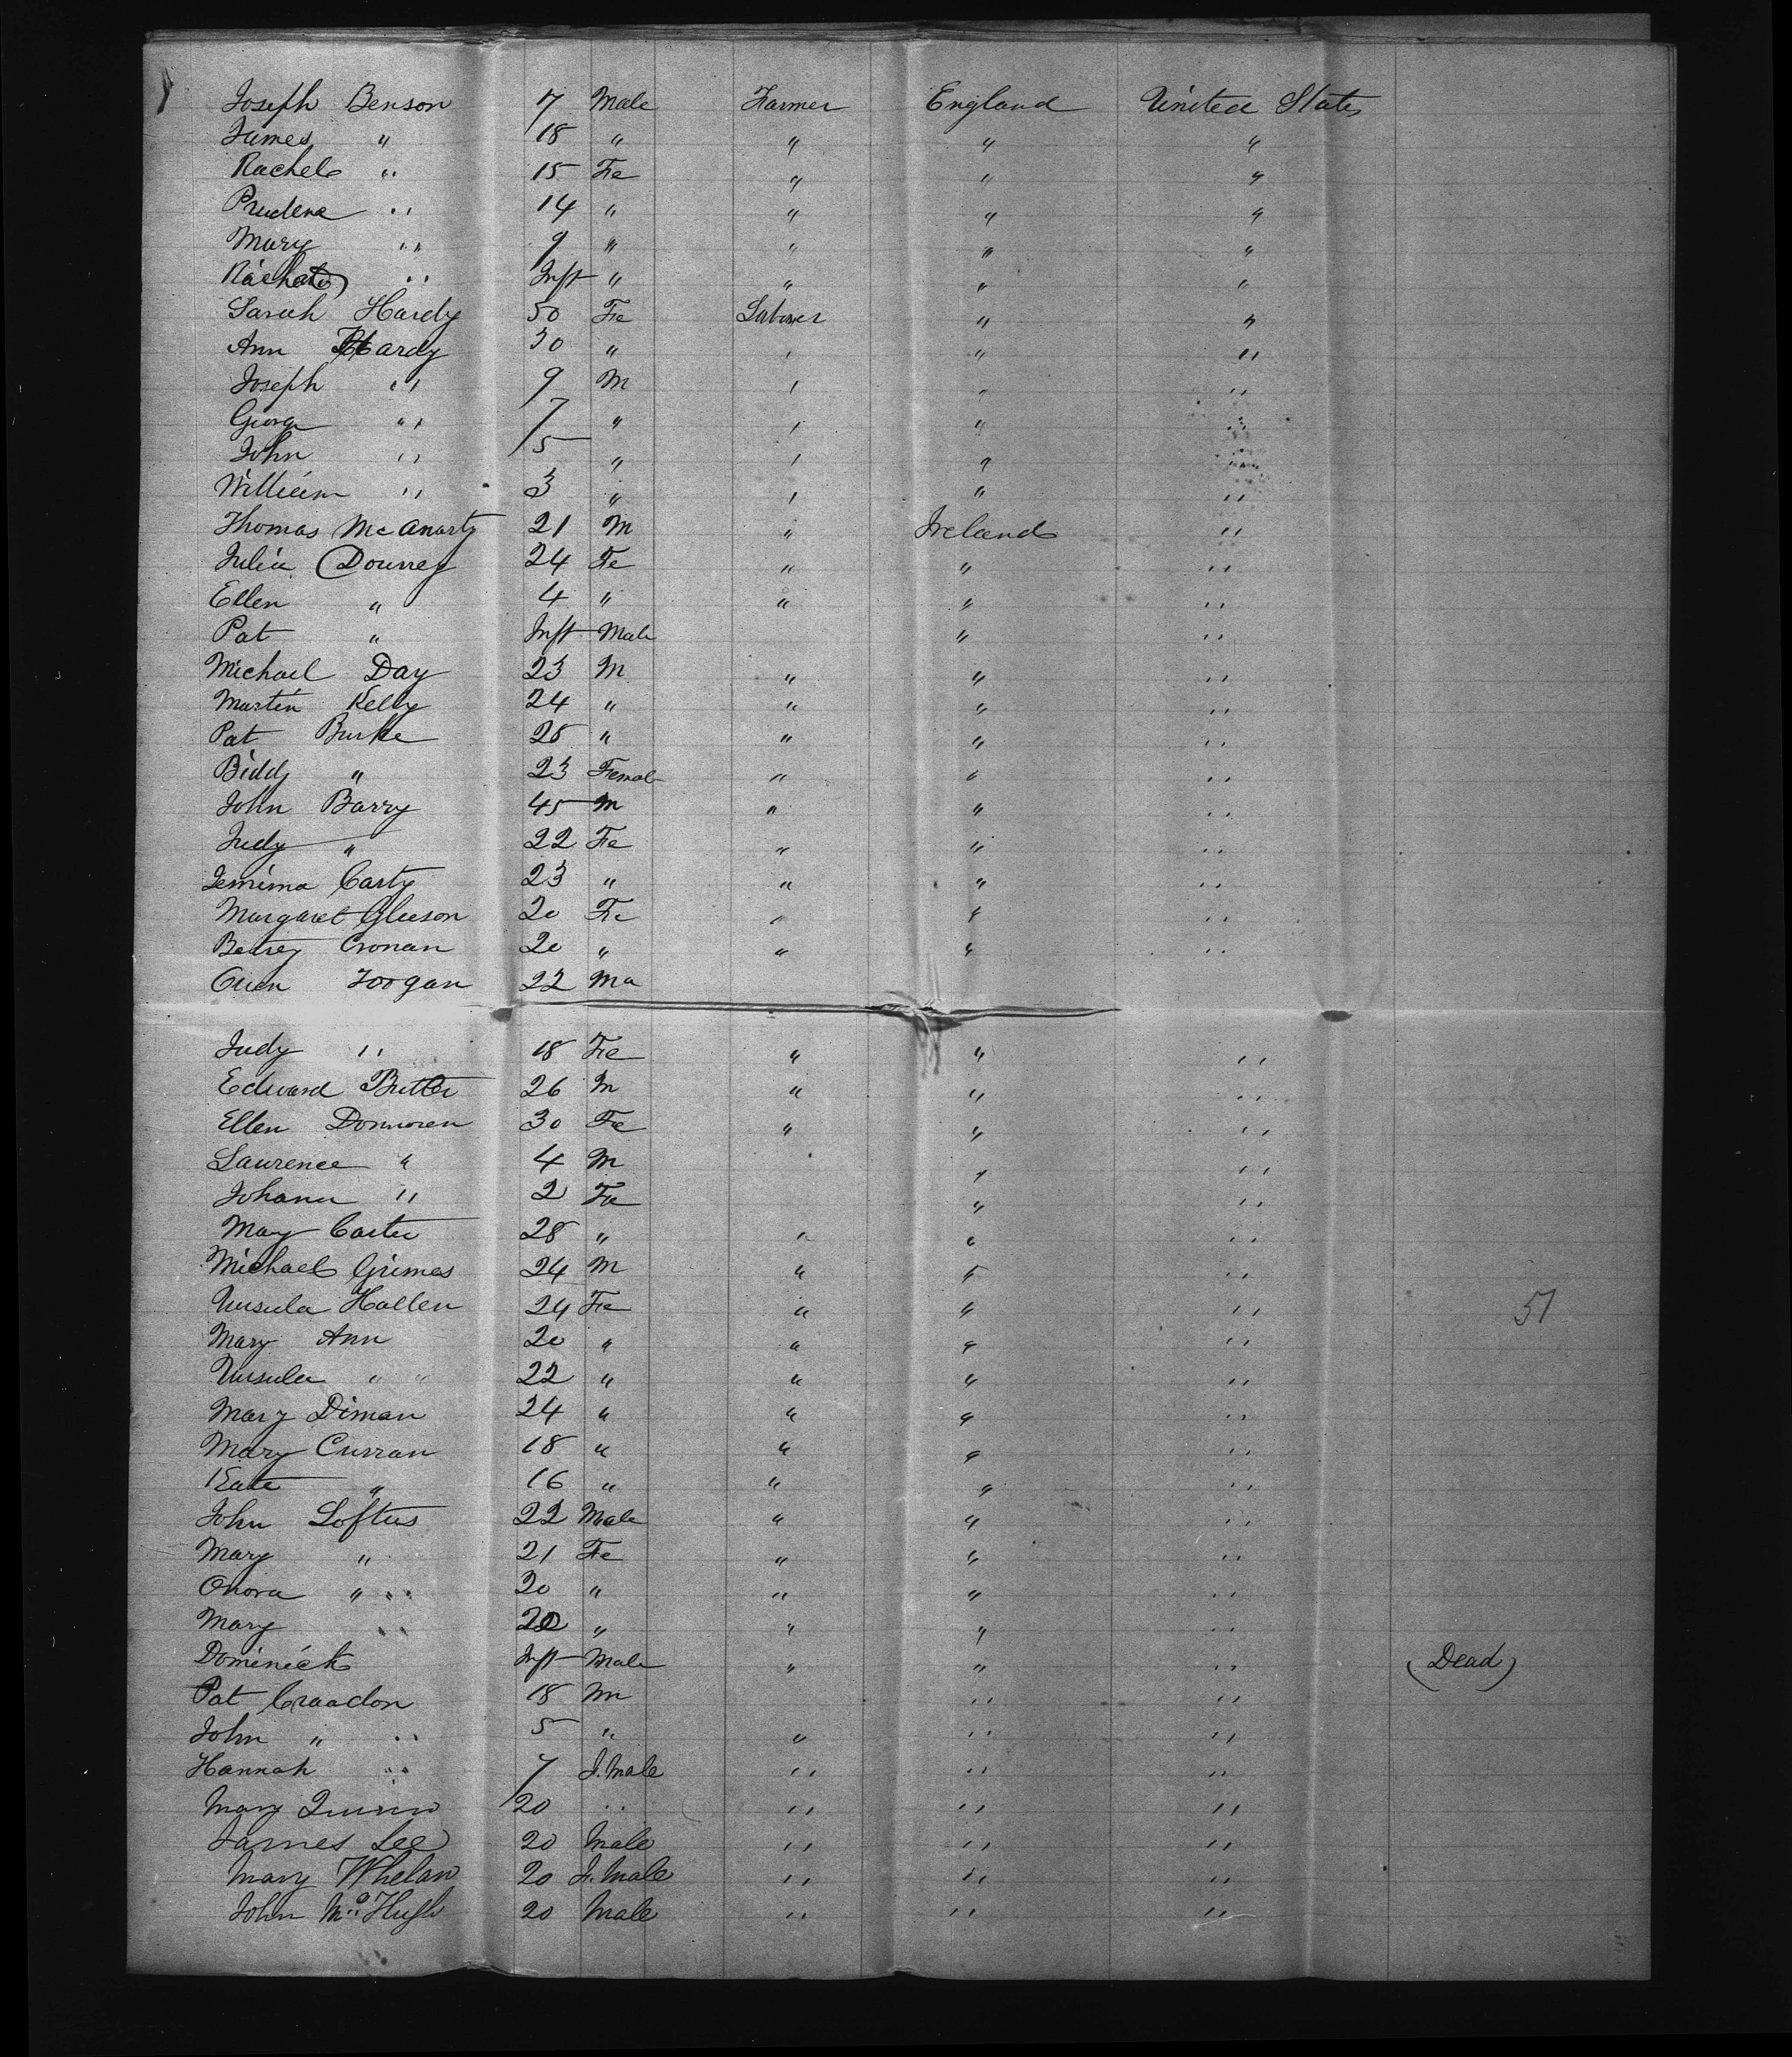 Joseph Benson 7 Male Farmer England United States
James " 18 " " " "
Rachel " 15 Fe " " "
Prudence " 14 " " " "
Mary " 9 " " " "
Rachel " Inft " " " "
Sarah Hardy 50 Fe Laborer " "
Ann Hardy 30 " " " "
Joseph " 9 M " " "
George " 7 " " " "
John " 5 " " " "
William " 3 " " " "
Thomas McAnarty 21 M " Ireland "
Julia Downey 24 Fe " " "
Ellen " 4 " " " "
Pat " Inft Male " "
Michael Day 23 M " " "
Martin Kelly 24 " " " "
Pat Burke 25 " " " "
Biddy " 23 Female " " "
John Barry 45 M " " "
Judy " 22 Fe " " "
Jemima Carty 23 " " " "
Margaret Gleeson 20 Fe " " "
Betsey Cronan 20 " " " "
Owen Foogan 22 Ma
Judy " 18 Fe " " "
Edward Butler 26 M " " "
Ellen Donnoven 30 Fe " " "
Laurence " 4 M " "
Johana " 2 Fe " "
May Carter 28 " " " "
Michael Grimes 24 M " " "
Ursula Hallen 24 Fe " " " 51
Mary Ann 20 " " " "
Ursula " " 22 " " " "
Mary Diman 24 " " " "
Mary Curran 18 " " " "
Kate " 16 " " " "
John Loftus 22 Male " " "
Mary " 21 Fe " " "
Onora " " 20 " " " "
Mary " 20 " " " "
Dominick Inft Male " " " (Dead)
Pat Craadon 18 M " "
John " " 5 " " " "
Hannah " 7 F. Male " " "
Mary Quinn 20 " " " "
James Lee 20 Male " " "
Mary Whelan 20 F. Male " " "
John McHugh 20 Male " " "